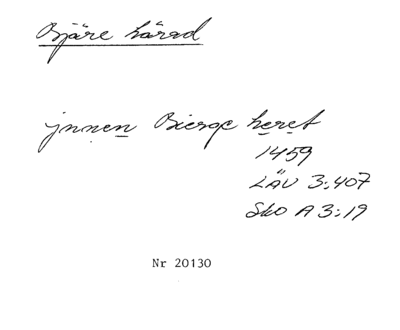 Bjäre härad
jnnen Bierge heret
1459
LÄU 3:407
Sko A 3:19
Nr 20130